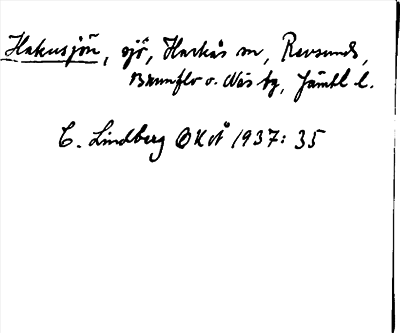 Hakusjön, sjö, Hackås sn, Revsunds,
Brunflo o. Näs tg, Jämtl. l.
C. Lindberg OKvÅ 1937: 35